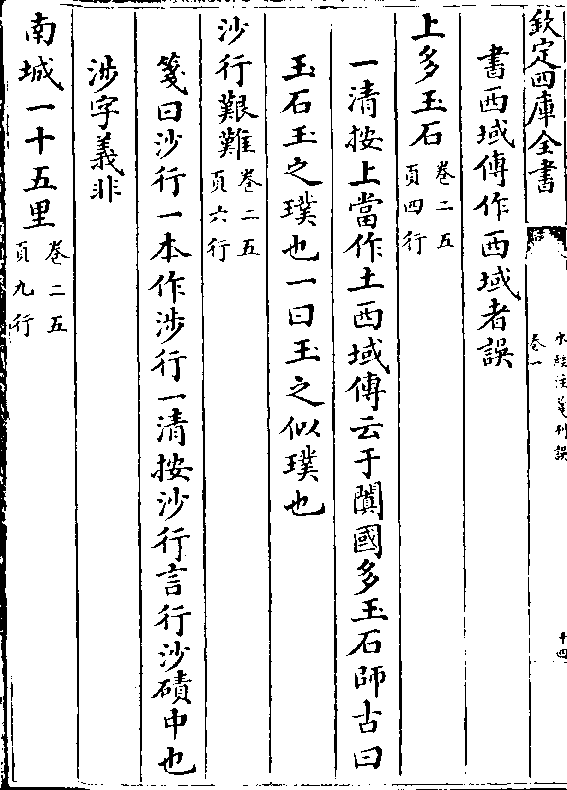 欽定四庫全書
水經注箋刊誤
卷一
十四
書西域傳作西域者誤
上多玉石卷二五
頁四行
一清按上當作土西域傳云于闐國多玉石師古曰
玉石玉之璞也一曰玉之似璞也
沙行艱難卷二五
頁六行
箋曰沙行一本作涉行一清按沙行言行沙磧中也
涉字義非
南城一十五里卷二五
頁九行